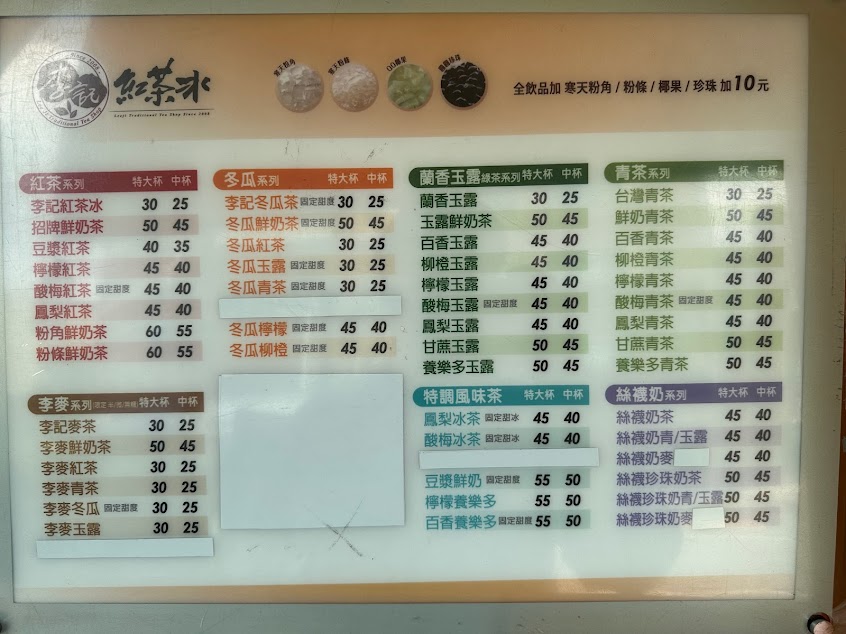 李記
Since 2008
Leeji Traditional Tea Shop
紅茶冰
Leeji Traditional Tea Shop Since 2008
寒天粉角
寒天粉條
QQ椰果
全飲品加 寒天粉角 / 粉條 / 椰果 / 珍珠 加 10 元
紅茶系列 特大杯 中杯
李記紅茶冰 30 25
招牌鮮奶茶 50 45
豆漿紅茶 40 35
檸檬紅茶 45 40
酸梅紅茶 固定甜度 45 40
鳳梨紅茶 45 40
粉角鮮奶茶 60 55
粉條鮮奶茶 60 55
李麥系列 特大杯 中杯
李記麥茶 30 25
李麥鮮奶茶 50 45
李麥紅茶 30 25
李麥青茶 30 25
李麥冬瓜 固定甜度 30 25
李麥玉露 30 25
冬瓜系列 特大杯 中杯
李記冬瓜茶 固定甜度 30 25
冬瓜鮮奶茶 固定甜度 50 45
冬瓜紅茶 30 25
冬瓜玉露 固定甜度 30 25
冬瓜青茶 固定甜度 30 25
冬瓜檸檬 固定甜度 45 40
冬瓜柳橙 固定甜度 45 40
蘭香玉露 綠茶系列 特大杯 中杯
蘭香玉露 30 25
玉露鮮奶茶 50 45
百香玉露 45 40
柳橙玉露 45 40
檸檬玉露 45 40
酸梅玉露 固定甜度 45 40
鳳梨玉露 45 40
甘蔗玉露 50 45
養樂多玉露 50 45
特調風味茶 特大杯 中杯
鳳梨冰茶 固定甜冰 45 40
酸梅冰茶 固定甜冰 45 40
豆漿鮮奶 固定甜度 55 50
檸檬養樂多 55 50
百香養樂多 固定甜度 55 50
青茶系列 特大杯 中杯
台灣青茶 30 25
鮮奶青茶 50 45
百香青茶 45 40
柳橙青茶 45 40
檸檬青茶 45 40
酸梅青茶 固定甜度 45 40
鳳梨青茶 45 40
甘蔗青茶 50 45
養樂多青茶 50 45
絲襪奶系列 特大杯 中杯
絲襪奶茶 45 40
絲襪奶青/玉露 45 40
絲襪奶麥 45 40
絲襪珍珠奶茶 50 45
絲襪珍珠奶青/玉露 50 45
絲襪珍珠奶麥 50 45